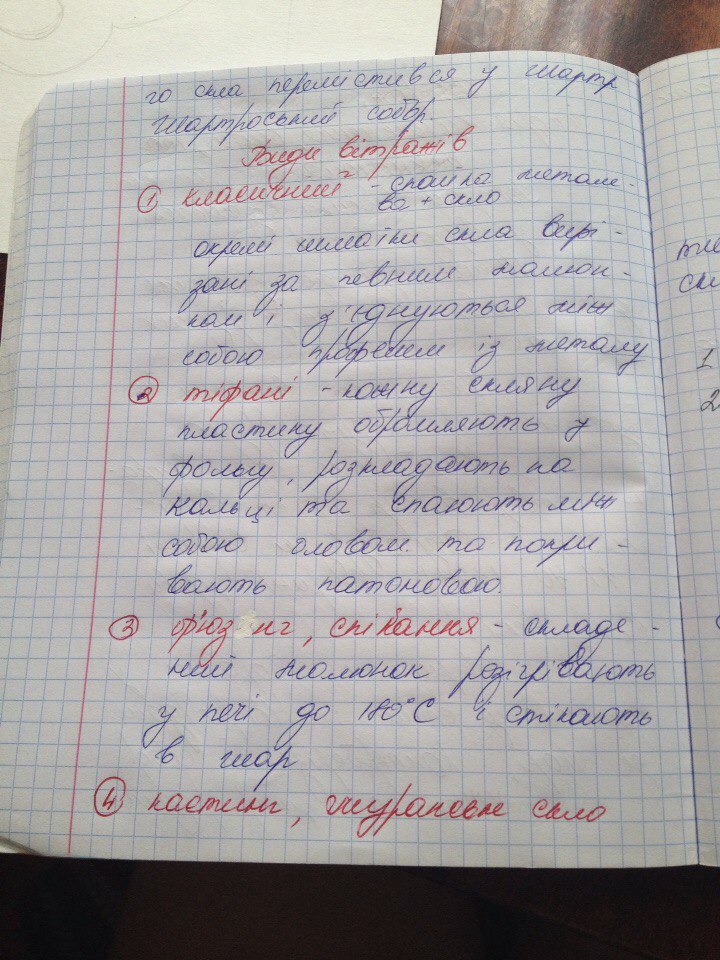 го скла перелистився у шартр
Шартроський собор.
Види вітражів
① класичний - спайка метале-
ва + скло
окремі шматки скла вирі-
зані за певним малюн-
ком і з'єднуються між
собою профелем із металу
② тіфані - кожну скляну
пластину обрамляють у
фольгу, розкладають на
кальці та спаюють між
собою оловом та покри-
вають патоновою.
③ ф'юзінг, спікання - складе-
ний малюнок розігрівають
у печі до 180°С і спікають
в шар
④ кастинг, скло
1
2